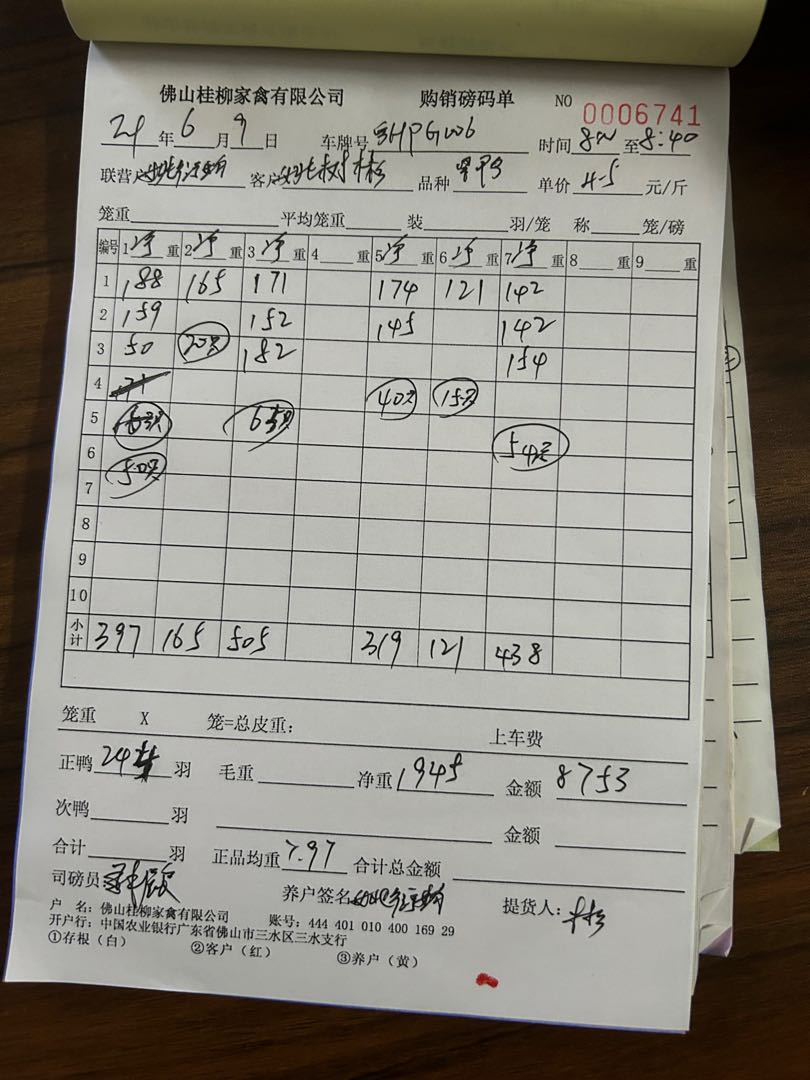 佛山桂柳家禽有限公司 购销磅码单 NO 0006741
24年6月9日 车牌号 时间 至8:40
联营户 客户 品种 单价4.5元/斤
笼重 平均笼重 装 羽/笼 称 笼/磅
编号 1净重 2净重 3净重 4 重 5净重 6净重 7净重 8 重 9 重
1 188 165 171 174 121 142
2 159 152 145 142
3 50 20只 182 154
4 40只 15只
5 65只
6 50只 54只
7
8
9
10
小计 397 165 505 319 121 438
笼重 X 笼=总皮重: 上车费
正鸭 羽 毛重 净重1945 金额8753
次鸭 羽 金额
合计 羽 正品均重7.97 合计总金额
司磅员 养户签名 提货人:
户 名: 佛山桂柳家禽有限公司 账号: 444 401 010 400 169 29
开户行: 中国农业银行广东省佛山市三水区三水支行
①存根(白) ②客户(红) ③养户(黄)